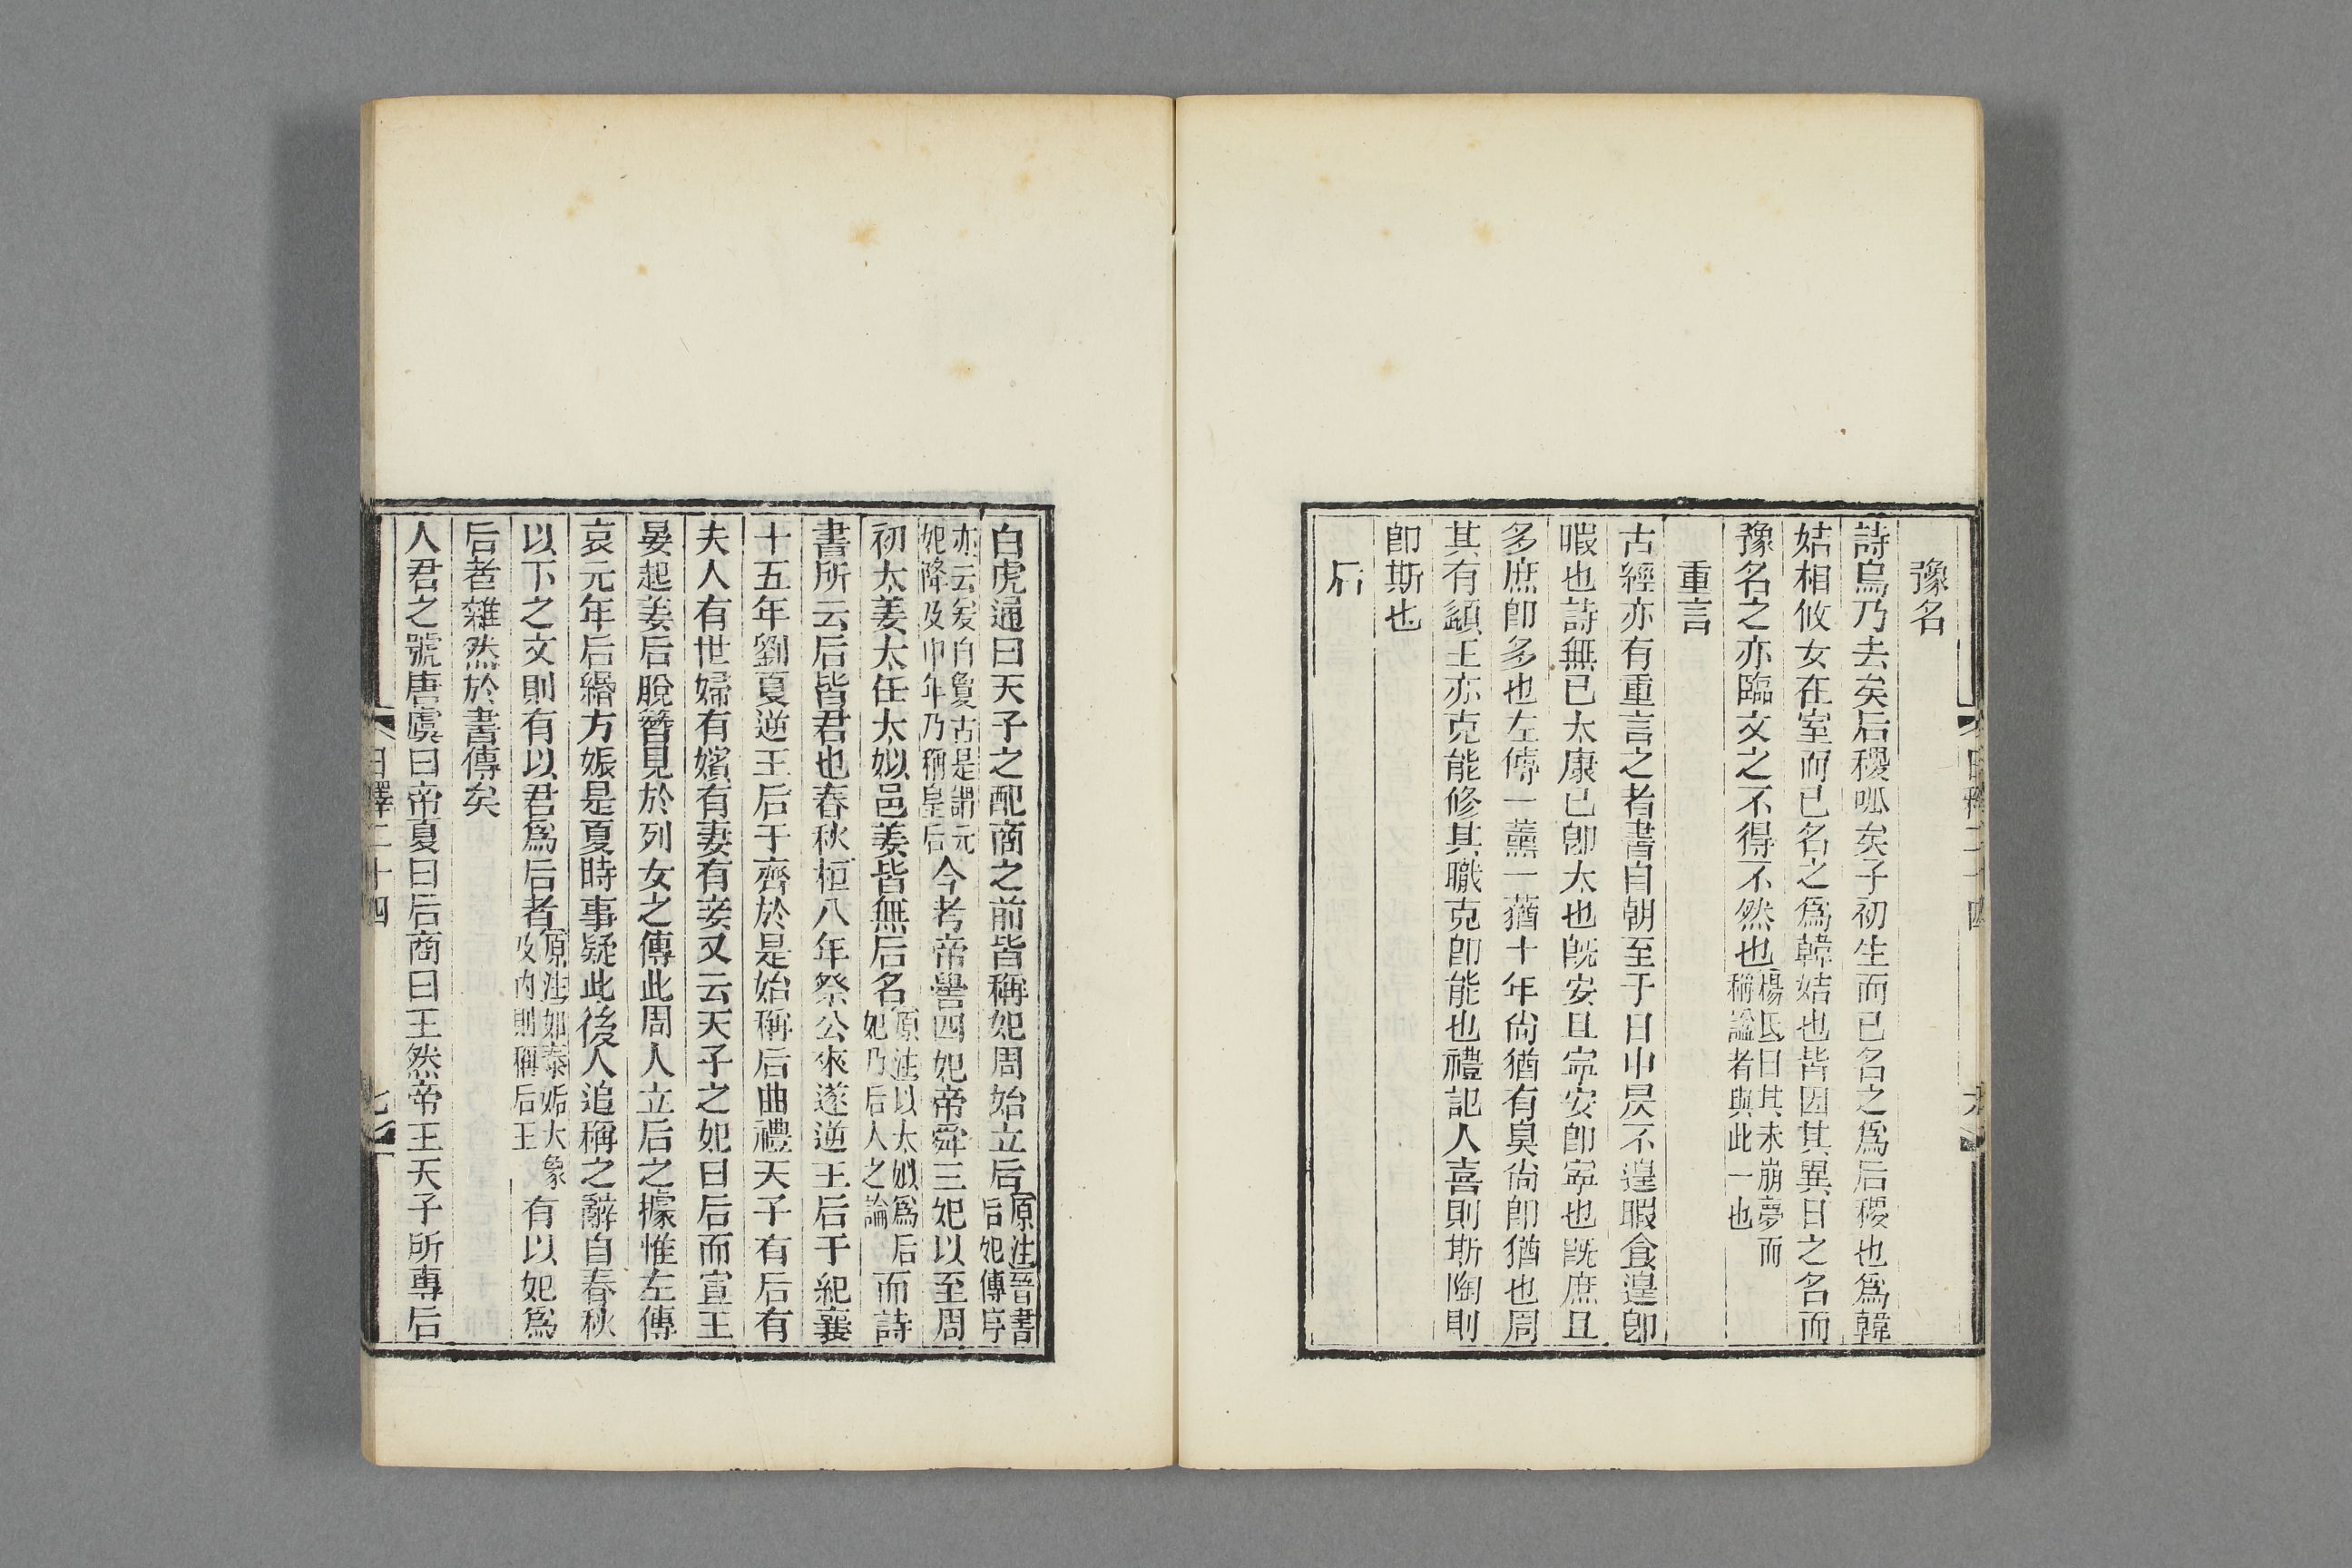 豫名
詩鳥乃去矣后稷呱矣子初生而已名之爲后稷也爲韓
姞相攸女在室而已名之爲韓姞也皆因其異日之名而
豫名之亦臨文之不得不然也楊氏曰其未崩夢而
稱諡者與此一也
重言
古經亦有重言之者書自朝至于日中昃不遑暇食遑卽
暇也詩無已大康已卽太也旣安且寧安卽寧也旣庶且
多庶卽多也左傳一薰一蕕十年尙猶有臭尙卽猶也周
其有頿王亦克能修其職克卽能也禮記人喜則斯陶則
卽斯也
后
白虎通曰天子之配商之前皆稱妃周始立后原注晉書
后妃傳序
亦云爰自夐古是謂元
妃降及中年乃稱皇后今考帝嚳四妃帝舜三妃以至周
初太姜太任太姒邑姜皆無后名原注以太姒爲后
妃乃后人之論而詩
書所云后皆君也春秋桓八年祭公來遂逆王后于紀襄
十五年劉夏逆王后于齊於是始稱后曲禮天子有后有
夫人有世婦有嬪有妻有妾又云天子之妃曰后而宣王
晏起姜后脫簪見於列女之傳此周人立后之據惟左傳
哀元年后緡方娠是夏時事疑此後人追稱之辭自春秋
以下之文則有以君爲后者原注如泰姤大象
及內則稱后王有以妃爲
后者雜然於書傳矣
人君之號唐虞曰帝夏曰后商曰王然帝王天子所專后
日釋二十四
七